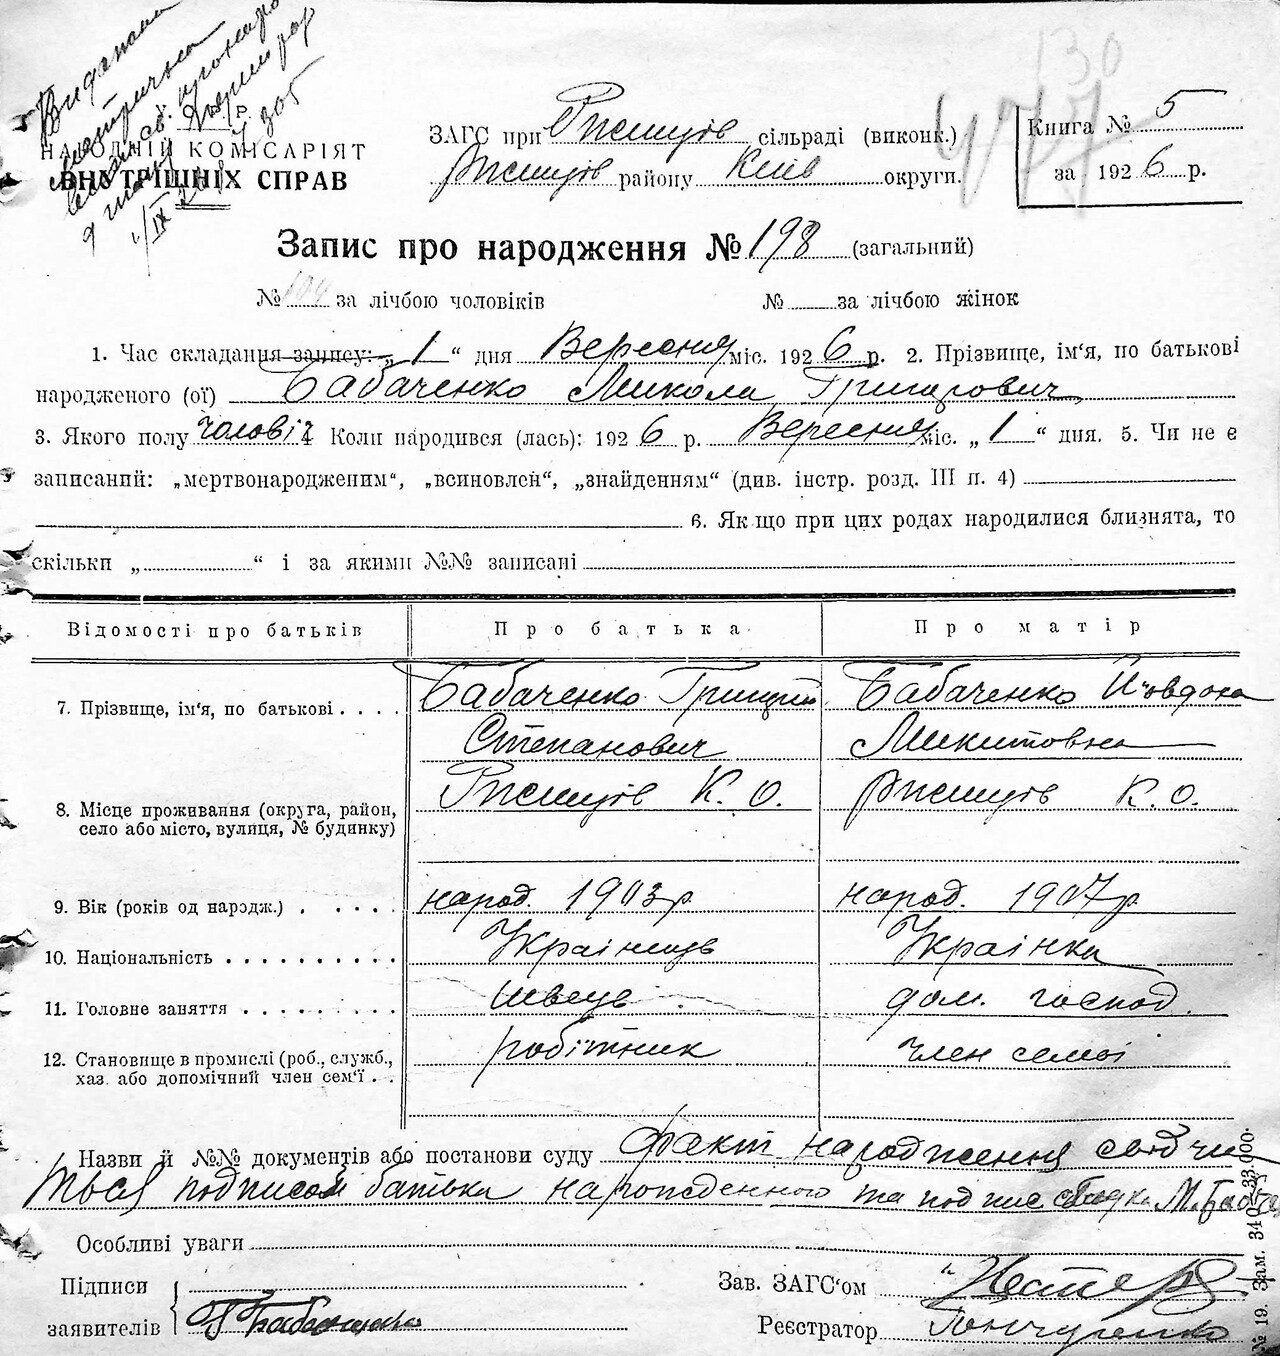 Видана
У. С. Р. Р.
НАРОДНІЙ КОМІСАРІЯТ
ВНУТРІШНІХ СПРАВ
ЗАГС при Ржищів сільраді (виконк.)
Ржищів району Київ округи.
130
477
Книга № 5
за 1926 р.
Запис про народження № 198 (загальний)
№ 104 за лічбою чоловіків № за лічбою жінок
1. Час складання запису: „ 1 “ дня Вересня міс. 1926 р. 2. Прізвище, ім'я, по батькові
народженого (ої) Бабаченко Микола Григорович
3. Якого полу чоловіч 4 Коли народився (лась): 1926 р. Вересня міс. „ 1 “ дня. 5. Чи не є
записаний: „мертвонародженим“, „всиновлен“, „знайденням“ (див. інстр. розд. III п. 4)
6. Якщо при цих родах народилися близнята, то
скільки „ “ і за якими №№ записані
Відомості про батьків Про батька Про матір
7. Прізвище, ім'я, по батькові . . . . Бабаченко Грицій Бабаченко Йовдоха
Степанович Микитовна
Ржищів К. О. Ржищів К. О.
8. Місце проживання (округа, район,
село або місто, вулиця, № будинку)
9. Вік (років од народж.) . . . . . народ. 1903 р. народ. 1907 р
10. Національність . . . . . . . . . . Українець Українка
11. Головне заняття . . . . . . . . . швець дом. господ.
12. Становище в промислі (роб., служб., робітник член семьі
хаз. або допомічний член сем'ї . .
Назви й №№ документів або постанови суду Факт народження свідчи
ться подписом батька народженного та подпис свідка М. Баба
Особливі уваги
Підписи
заявителів Г Бабаченко
Зав. ЗАГС'ом
Реєстратор Гончаренко
№ 19. Зам. 340—33.000.